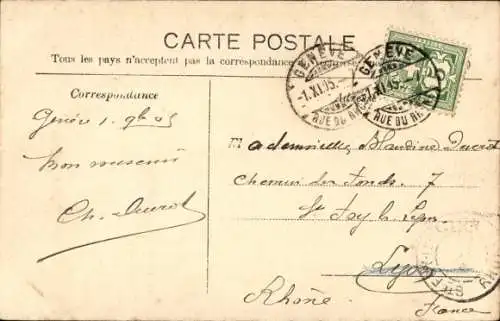 CARTE POSTALE
Tous les pays n'acceptent pas la correspondance
Correspondance
Genève 1. 9bre 05
Bon souvenir
Ch. Ducrot
GENÈVE
-1.XI.05.-
RUE DU
GENÈVE
-1.XI.05.-
RUE DU
Mademoiselle Blandine Ducrot
Chemin des Fonds. 7
St Foy lès Lyon
Lyon
Rhône.
France